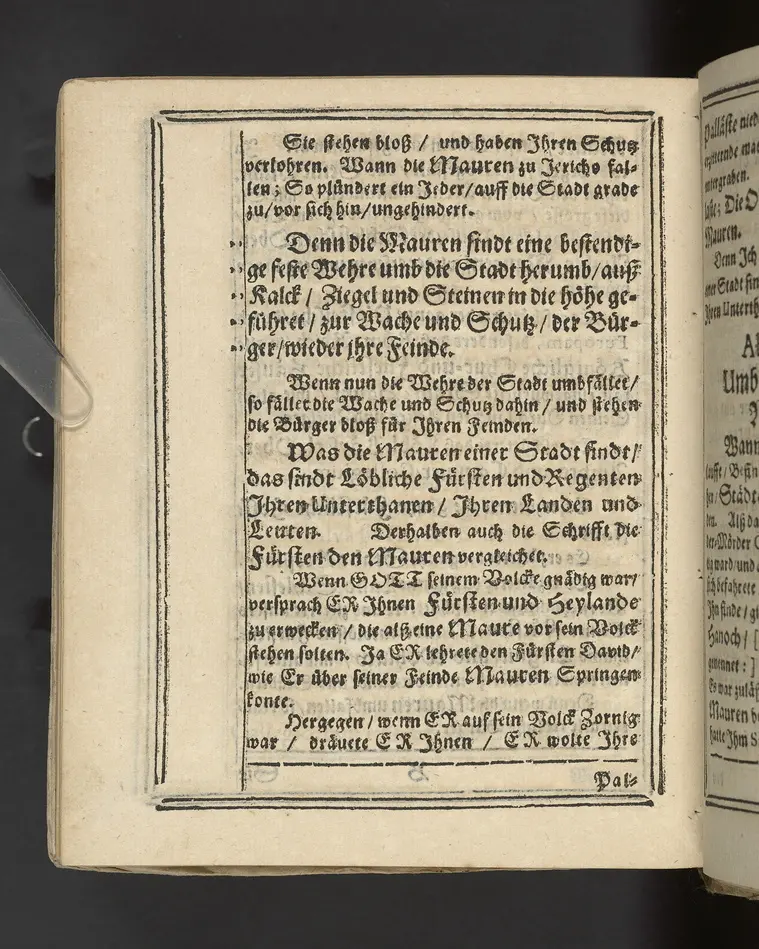 Sie stehen bloß / und haben Ihren Schutz
verlohren. Wann die Mauren zu Jericho fal-
len; So plündert ein Jeder/auff die Stadt grade
zu/vor sich hin/ungehindert.
Denn die Mauren sindt eine bestendi-
ge feste Wehre umb die Stadt herumb/auß
Kalck / Ziegel und Steinen in die höhe ge-
führet / zur Wache und Schutz / der Bür-
ger/wieder jhre Feinde.
Wenn nun die Wehre der Stadt umbfället/
so fället die Wache und Schutz dahin / und stehen
die Bürger bloß für Ihren Feinden.
Was die Mauren einer Stadt sindt/
das sindt Löbliche Fürsten und Regenten
Ihren Unterthanen / Ihren Landen und
Leuten. Derhalben auch die Schrifft die
Fürsten den Mauren vergleichet.
Wenn GOTT seinem Volcke gnädig war/
versprach ER Ihnen Fürsten und Heylande
zu erwecken / die alß eine Maure vor sein Volck
stehen solten. Ja ER lehrete den Fürsten David/
wie Er über seiner Feinde Mauren Springen
konte.
Hergegen / wenn ER auf sein Volck Zornig
war / dräuete ER Ihnen / ER wolte Ihre
Pal-
Palläste nied
untergraben.
Die
Mauren.
Denn Ich
Stadt sin
Ihren Unterth
Al
Umb
Wann
Städt
Alß da
der-Mörder
ward/und
Ihn finde / gi
Hanoch / [
Es war zuläs
Mauren b
hatte Ihm S